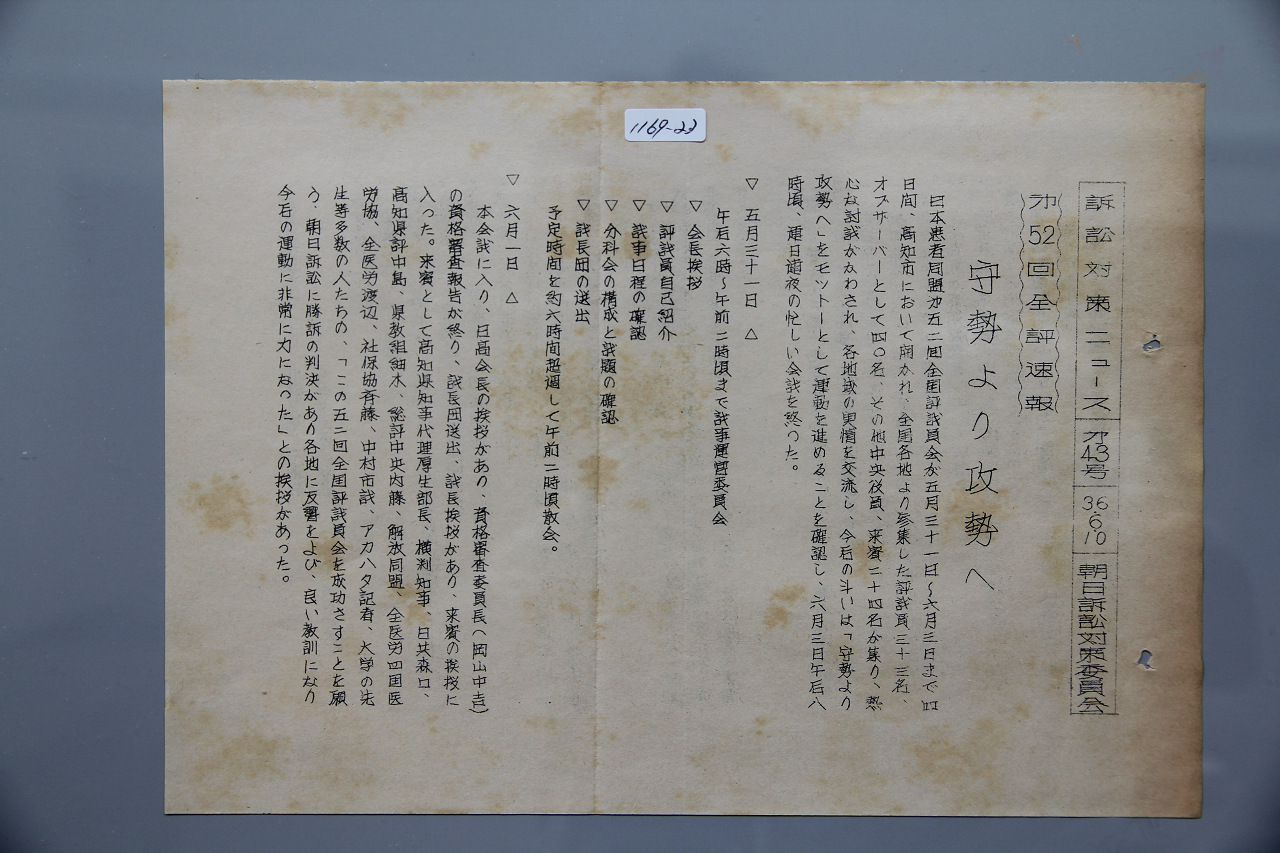 1169-23
訴訟対策ニュース 才43号 36.6.10 朝日訴訟対策委員会
才52回全評速報
守勢より攻勢へ
日本患者同盟才五二回全国評議員会が五月三十一日～六月三日まで四
日間、高知市において開かれ、全国各地より参集した評議員三十三名、
オブサーバーとして四〇名、その他中央役員、来賓二十四名が集り、熱
心な討議がかわされ、各地域の実情を交流し、今后の斗いは「守勢より
攻勢へ」をモットーとして運動を進めることを確認し、六月三日午后八
時頃、連日連夜の忙しい会議を終った。
▽ 五月三十一日 △
午后六時～午前二時頃まで議事運営委員会
▽ 会長挨拶
▽ 評議員自己紹介
▽ 議事日程の確認
▽ 分科会の構成と議題の確認
▽ 議長団の選出
予定時間を約六時間超過して午前二時頃散会。
▽ 六月一日 △
本会議に入り、日高会長の挨拶があり、資格審査委員長（岡山中吉）
の資格審査報告が終り、議長団選出、議長挨拶があり、来賓の挨拶に
入った。来賓として高知県知事代理厚生部長、横渕知事、日共森口、
高知県評中島、県教組細木、総評中央内藤、解放同盟、全医労四国医
労協、全医労渡辺、社保協斉藤、中村市議、アカハタ記者、大学の先
生等多数の人たちの、「この五二回全国評議員会を成功さすことを願
う、朝日訴訟に勝訴の判決があり各地に反響をよび、良い教訓になり
今后の運動に非常に力になった」との挨拶があった。